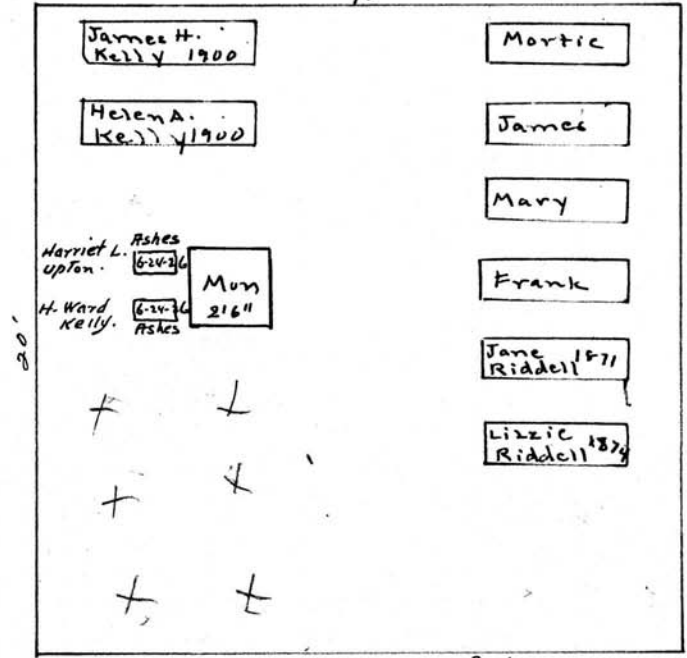 James H.
Kelly 1900
Helen A.
Kelly 1900
Harriet L.
Upton.
Ashes
6-24-26
Mun
2'6"
H. Ward
Kelly.
6-24-26
Ashes
20'
Mortie
James
Mary
Frank
Jane 1871
Riddell
Lizzie 1874
Riddell